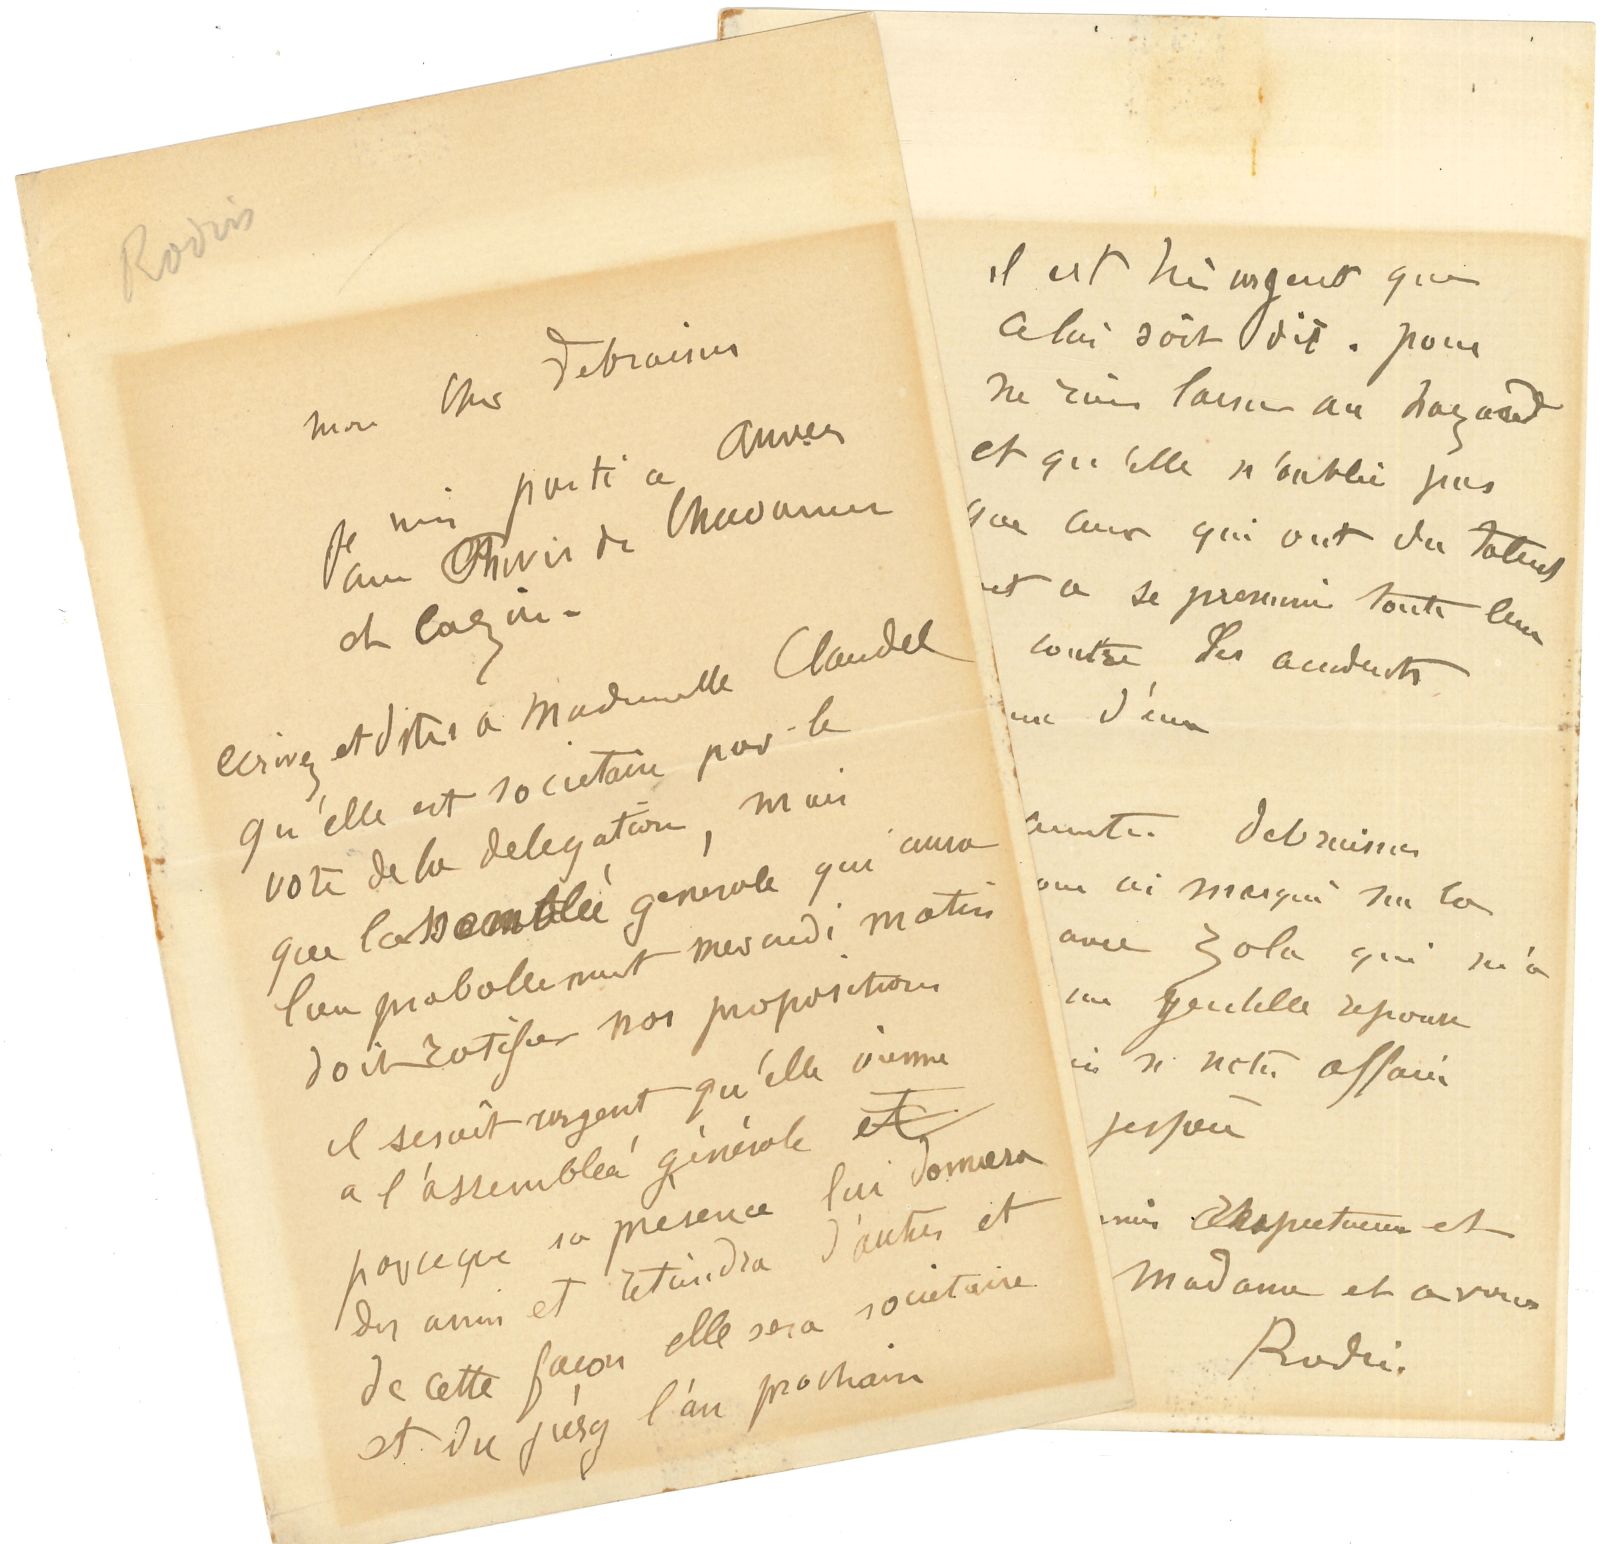 Rodin
mon cher debraisne
je suis parti a anvers
avec Puvis de Chavannes
et Cazin -
ecrivez et dites a Mademoiselle Claudel
qu'elle est societaire par le
vote de la delegation, mais
que l'assemblée generale qui aura
lieu probablement mercredi matin
doit ratifier nos propositions
il serait urgent qu'elle vienne
a l'assemblée générale et
parceque sa presence lui donnera
des amis et retiendra d'autres et
de cette façon elle sera societaire
et du jury l'an prochain
il est très urgent que
cela soit dit. pour
ne rien laisser au hazard
et qu'elle n'oublie pas
que ceux qui ont du talent
ont a se premunir toute leur
contre les accidents
d'eux
debraisne
marqué sur la
avec Zola qui m'a
une gentille reponse
si notre affaire
respectueux et
Madame et a vous
Rodin.